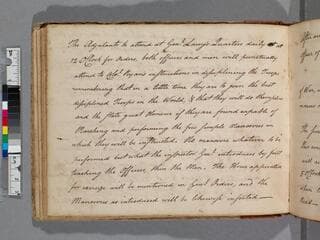 The Adjutants to attend at Genl. Quarters daily at
12 O'Clock for Orders, both officers and men will punctually
attend to instructions in disciplining the Troops
remembering that in a little time they are to join the best
disciplined Troops in the World, & that they will do themselves
and the State great Honour if they are found capable of
Marching and performing the few simple Manoevres in
which they will be instructed. No manoevre whatever to be
performed but what the inspector Genl. introduces by first
teaching the Officers, then the Men. The Hours appointed
for exercise will be mentioned in Genl. Orders, and the
Manoevres as introduced will be likewise inserted